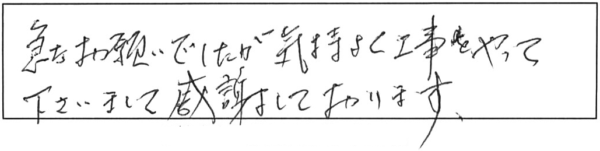 急なお願いでしたが気持よく工事をやって
下さいまして感謝をしております。